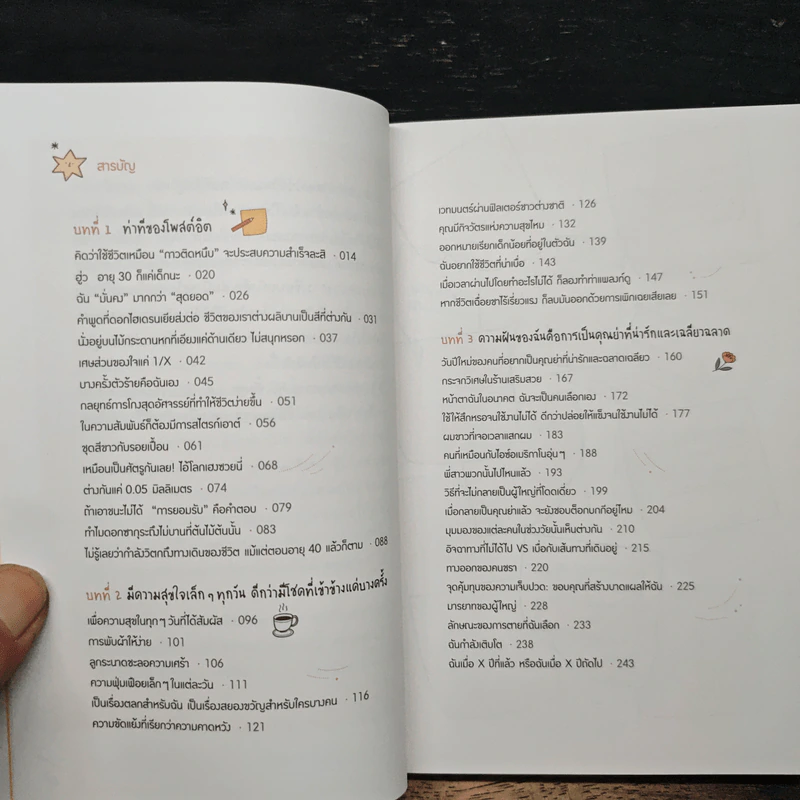 สารบัญ
บทที่ 1 ท่าทีของโพสต์อิต
คิดว่าใช้ชีวิตเหมือน "กาวติดหนึบ" จะประสบความสำเร็จละสิ · 014
ฮู่ว อายุ 30 ก็แค่เด็กนะ · 020
ฉัน "มั่นคง" มากกว่า "สุดยอด" · 026
คำพูดที่ดอกไฮเดรนเยียส่งต่อ ชีวิตของเราต่างผลิบานเป็นสีที่ต่างกัน · 031
นั่งอยู่บนไม้กระดานหกที่เอียงแค่ด้านเดียว ไม่สนุกหรอก · 037
เศษส่วนของใจแค่ 1/X · 042
บางครั้งตัวร้ายคือฉันเอง · 045
กลยุทธ์การโกงสุดอัศจรรย์ที่ทำให้ชีวิตง่ายขึ้น · 051
ในความสัมพันธ์ก็ต้องมีการสไตรก์เอาต์ · 056
ชุดสีขาวกับรอยเปื้อน · 061
เหมือนเป็นศัตรูกันเลย! ไอ้โลกเฮงซวยนี่ · 068
ต่างกันแค่ 0.05 มิลลิเมตร · 074
ถ้าเอาชนะไม่ได้ "การยอมรับ" คือคำตอบ · 079
ทำไมดอกซากุระถึงไม่บานที่ต้นไม้ต้นนั้น · 083
ไม่รู้เลยว่ากำลังวิตกถึงทางเดินของชีวิต แม้แต่ตอนอายุ 40 แล้วก็ตาม · 088
บทที่ 2 มีความสุขใจเล็กๆ ทุกวัน ดีกว่ามีโชคที่เข้าข้างแค่บางครั้ง
เพื่อความสุขในทุกๆ วันที่ได้สัมผัส · 096
การพับผ้าให้ง่าย · 101
ลูกระนาดชะลอความเศร้า · 106
ความฟุ่มเฟือยเล็กๆ ในแต่ละวัน · 111
เป็นเรื่องตลกสำหรับฉัน เป็นเรื่องสยองขวัญสำหรับใครบางคน · 116
ความขัดแย้งที่เรียกว่าความคาดหวัง · 121
เวทมนตร์ผ่านฟิลเตอร์ชาวต่างชาติ · 126
คุณมีกิจวัตรแห่งความสุขไหม · 132
ออกหมายเรียกเด็กน้อยที่อยู่ในตัวฉัน · 139
ฉันอยากใช้ชีวิตที่น่าเบื่อ · 143
เมื่อเวลาผ่านไปโดยทำอะไรไม่ได้ ก็ลองทำท่าแพลงก์ดู · 147
หากชีวิตเฉื่อยชาไร้เรี่ยวแรง ก็ลบมันออกด้วยการเพิกเฉยเสียเลย · 151
บทที่ 3 ความฝันของฉันคือการเป็นคุณย่าที่น่ารักและเฉลียวฉลาด
วันปีใหม่ของคนที่อยากเป็นคุณย่าที่น่ารักและฉลาดเฉลียว · 160
กระจกวิเศษในร้านเสริมสวย · 167
หน้าตาฉันในอนาคต ฉันจะเป็นคนเลือกเอง · 172
ใช้ให้สึกหรอจนใช้งานไม่ได้ ดีกว่าปล่อยให้แข็งจนใช้งานไม่ได้ · 177
ผมขาวที่เจอเวลาแสกผม · 183
คนที่เหมือนกับไอซ์อเมริกาโนอุ่นๆ · 188
พี่สาวพวกนั้นไปไหนแล้ว · 193
วิธีที่จะไม่กลายเป็นผู้ใหญ่ที่โดดเดี่ยว · 199
เมื่อกลายเป็นคุณย่าแล้ว จะยังชอบต็อกบกกีอยู่ไหม · 204
มุมมองของแต่ละคนในช่วงวัยนั้นเห็นต่างกัน · 210
อิจฉาทางที่ไม่ได้ไป VS เบื่อกับเส้นทางที่เดินอยู่ · 215
ทางออกของคนชรา · 220
จุดคุ้มทุนของความเจ็บปวด: ขอบคุณที่สร้างบาดแผลให้ฉัน · 225
มารยาทของผู้ใหญ่ · 228
ลักษณะของการตายที่ฉันเลือก · 233
ฉันกำลังเติบโต · 238
ฉันเมื่อ X ปีที่แล้ว หรือฉันเมื่อ X ปีถัดไป · 243